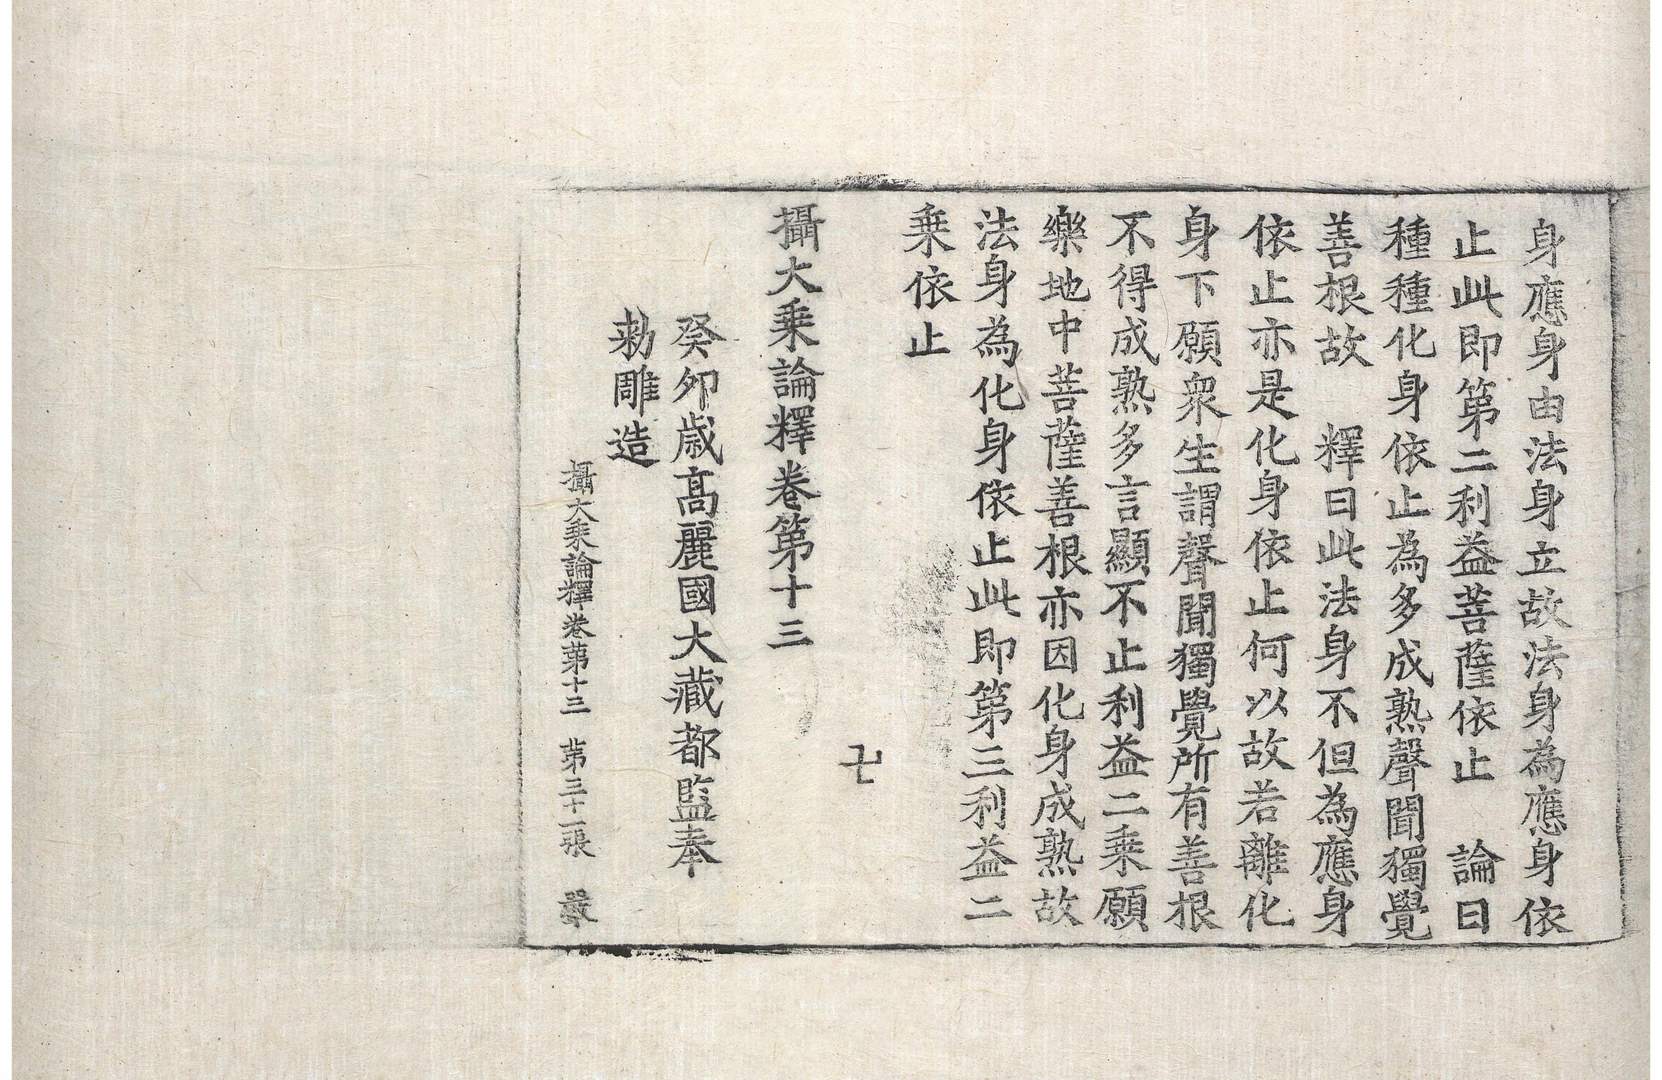 身應身由法身立故法身為應身依
止此即第二利益菩薩依止　論曰
種種化身依止為多成熟聲聞獨覺
善根故　釋曰此法身不但為應身
依止亦是化身依止何以故若離化
身下願衆生謂聲聞獨覺所有善根
不得成熟多言顯不止利益二乗願
樂地中菩薩善根亦因化身成熟故
法身為化身依止此即第三利益二
乗依止
攝大乗論釋卷第十三
癸夘歲髙麗國大藏都監奉
勑雕造
攝大乗論釋卷第十三　第三十一張　嚴